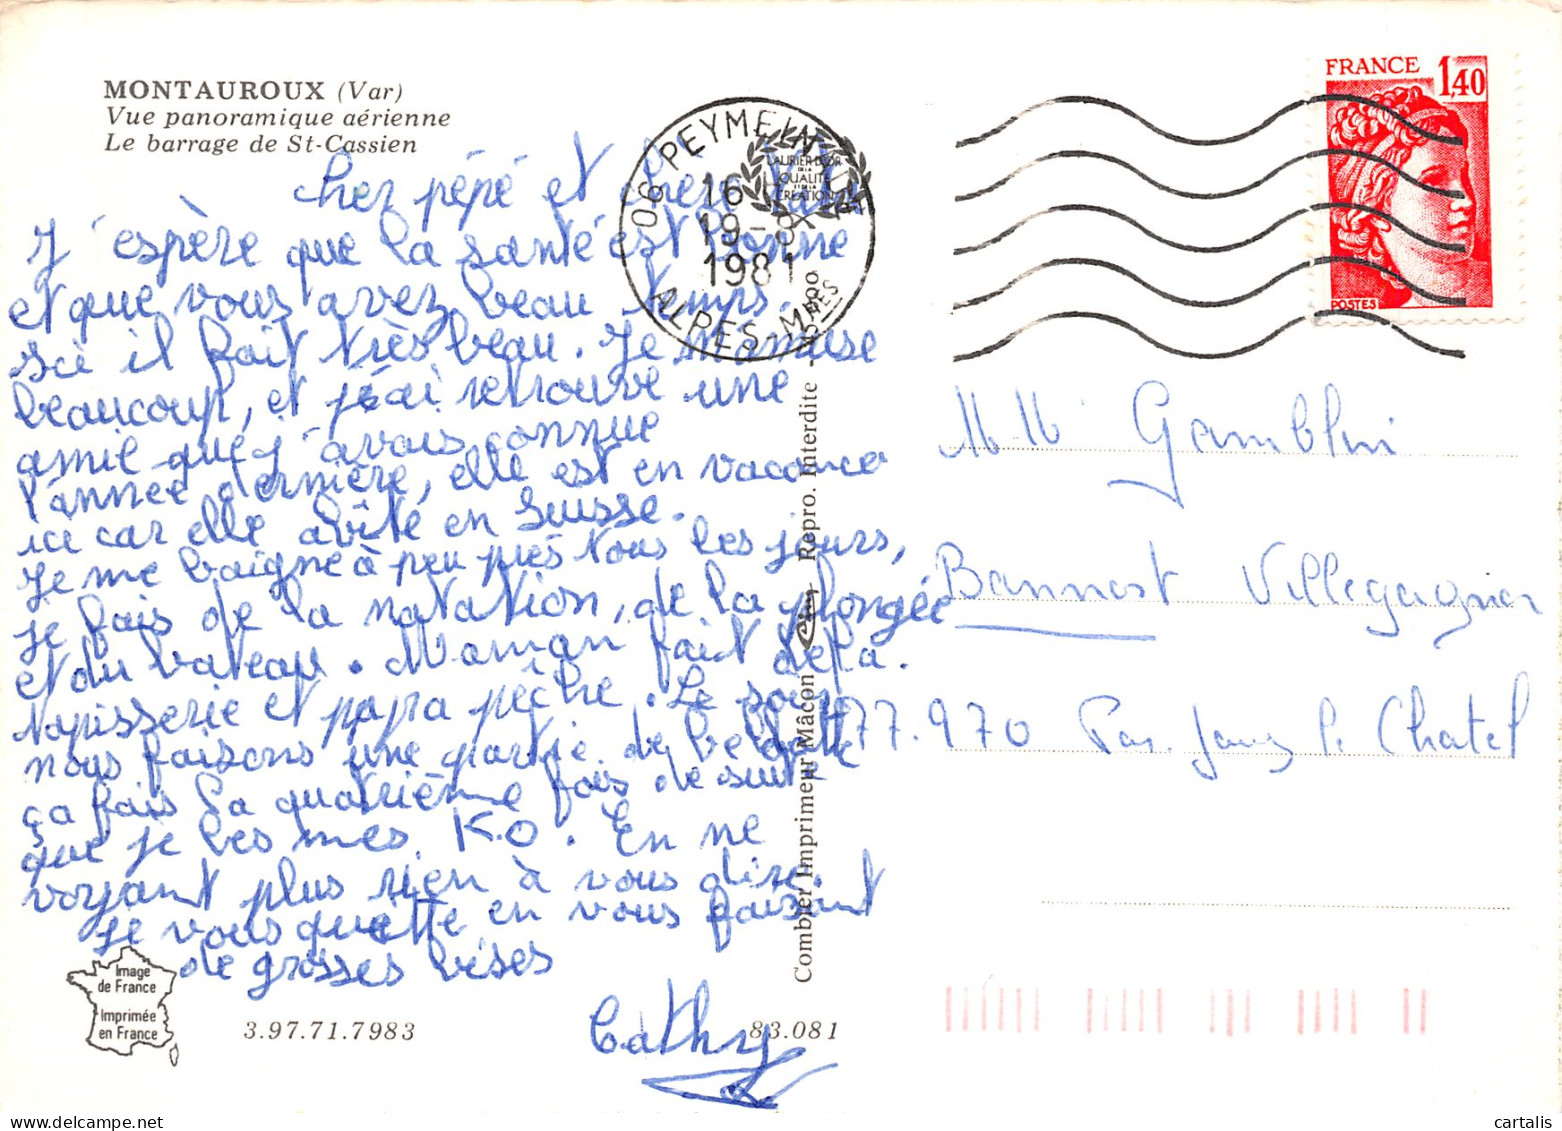 MONTAUROUX (Var)
Vue panoramique aérienne
Le barrage de St-Cassien
Cher pépé et chère
J'espère que la santé est bonne
et que vous avez beau temps.
Ici il fait très beau. Je m'amuse
beaucoup, et j'ai retrouve une
amie que j'avais connue
l'année dernière, elle est en vacance
ici car elle abite en Suisse.
Je me baigne à peu près tous les jours,
je fais de la natation, de la plongée
et du bateau. Maman fait de la
tapisserie et papa pêche. Le soir
nous faisons une partie de belotte
ça fais la quatrième fois de suite
que je les mes K.O. En ne
voyant plus rien à vous dire.
je vous quitte en vous faisant
de grosses bises
Cathy
Image
de France
Imprimée
en France
3.97.71.7983
83.081
Combier Imprimeur Mâcon Repro. Interdite
LAURIER D'OR
DE LA
QUALITÉ
ET DE LA
CRÉATION
06 PEYMEINADE
16 H
19-8
1981
ALPES-MMES
FRANCE 1,40
POSTES
M. Mme Gamblin
Bannost Villegagnon
77.970 Par Jouy le Chatel